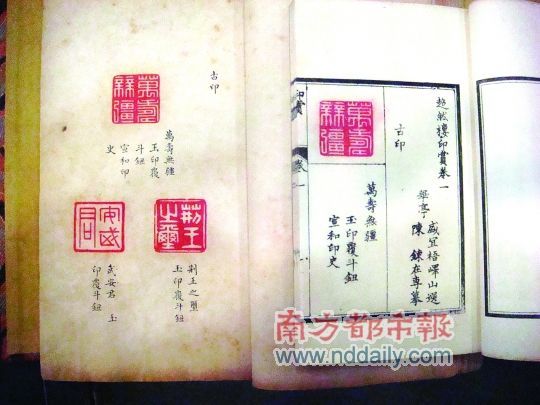 超然樓印賞卷一
華亭
盛宜梧嶧山選
陳鍊在專摹
古印
萬壽無疆
萬壽無疆
玉印覆斗鈕
宣和印史
印賞
卷一
古印
萬壽無疆
萬壽無疆
玉印覆
斗鈕
宣和印
史
荊王之璽
荊王之璽
玉印覆斗鈕
武安君
武安君 玉
印覆斗鈕
南方都市報
www.nddaily.com